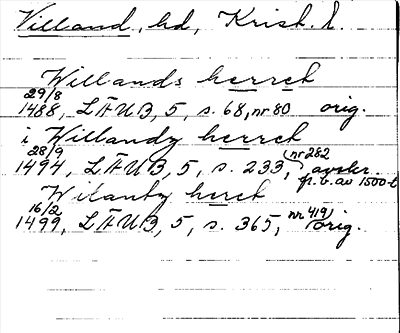 Villand, hd, Krist. l.
Willands herreh
29/8
1488, LÄUB, 5, s. 68, nr 80 orig.
i Willandy herreh
28/9
1494, LÄUB, 5, s. 233, (nr 282 avskr.
fr. b. av 1500-t
Wilanby hereh
16/2
1499, LÄUB, 5, s. 365, nr 419) orig.